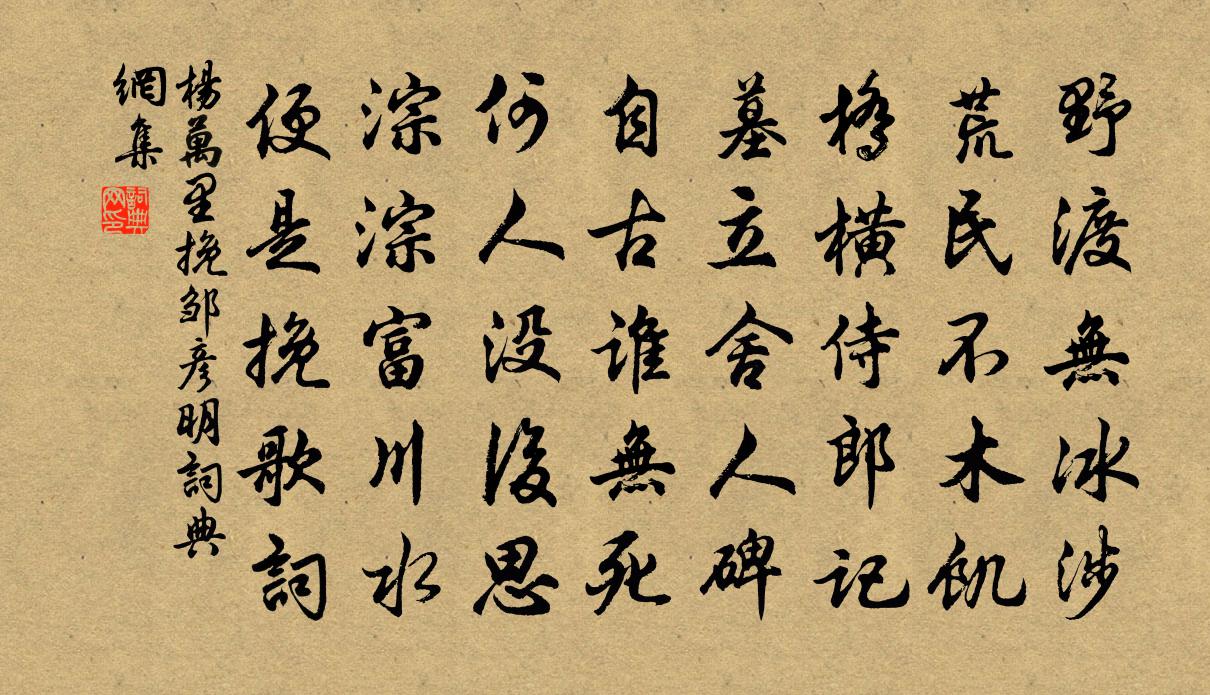 野渡無冰涉
荒民不木飢
橋橫侍郎記
墓立舍人碑
自古誰無死
何人没後思
淙淙富川水
便是挽歌詞
楊萬里挽邹彦明詞典
網集
詞典
网印